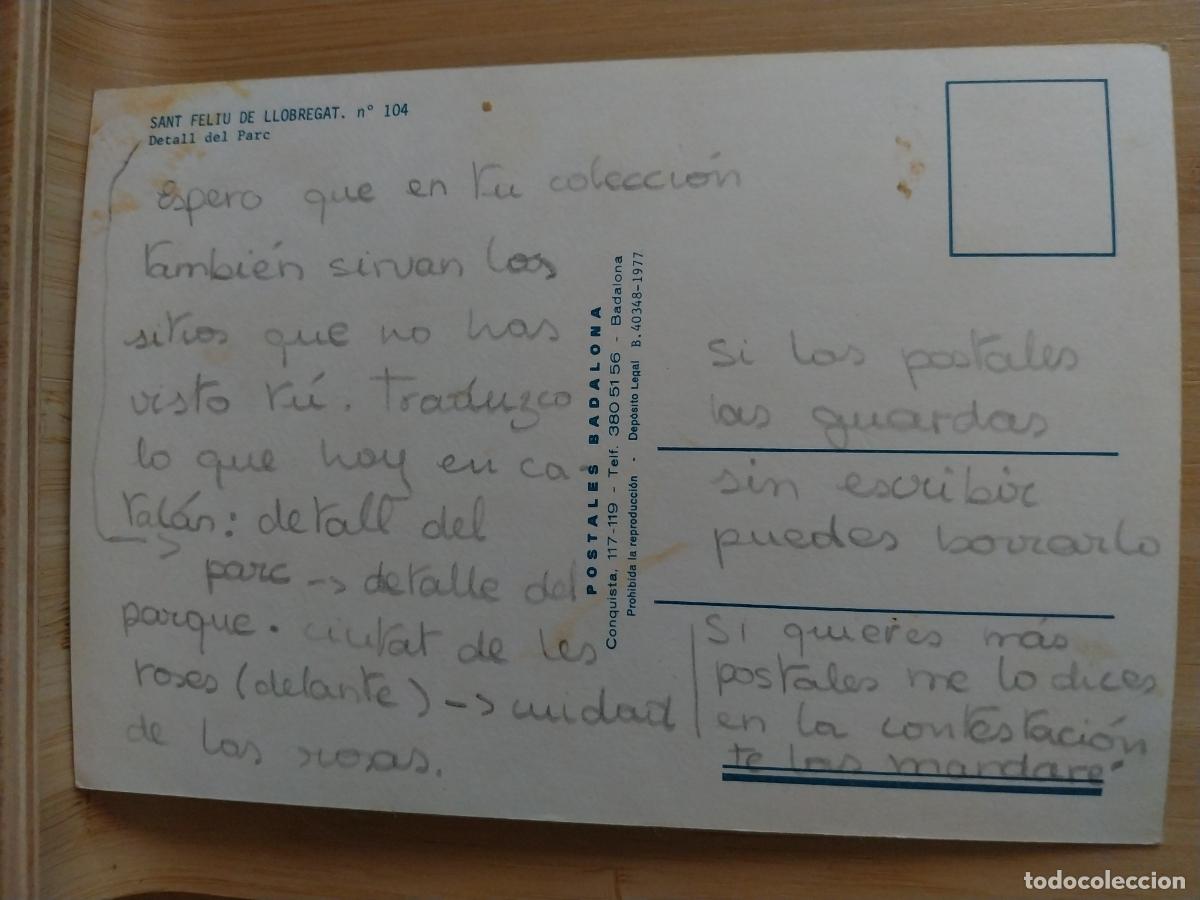 SANT FELIU DE LLOBREGAT. nº 104
Detall del Parc
Espero que en tu colección
también sirvan los
sitios que no has
visto tú. Traduzco
lo que hay en ca
talán: detall del
parc -> detalle del
parque. ciutat de les
roses (delante) -> ciudad
de las rosas.
POSTALES BADALONA
Conquista, 117-119 - Telf. 380 51 56 - Badalona
Prohibida la reproducción - Depósito Legal B. 40348-1977
Si las postales
las guardas
sin escribir
puedes borrarlo
Si quieres más
postales me lo dices
en la contestación
te las mandaré
todocoleccion